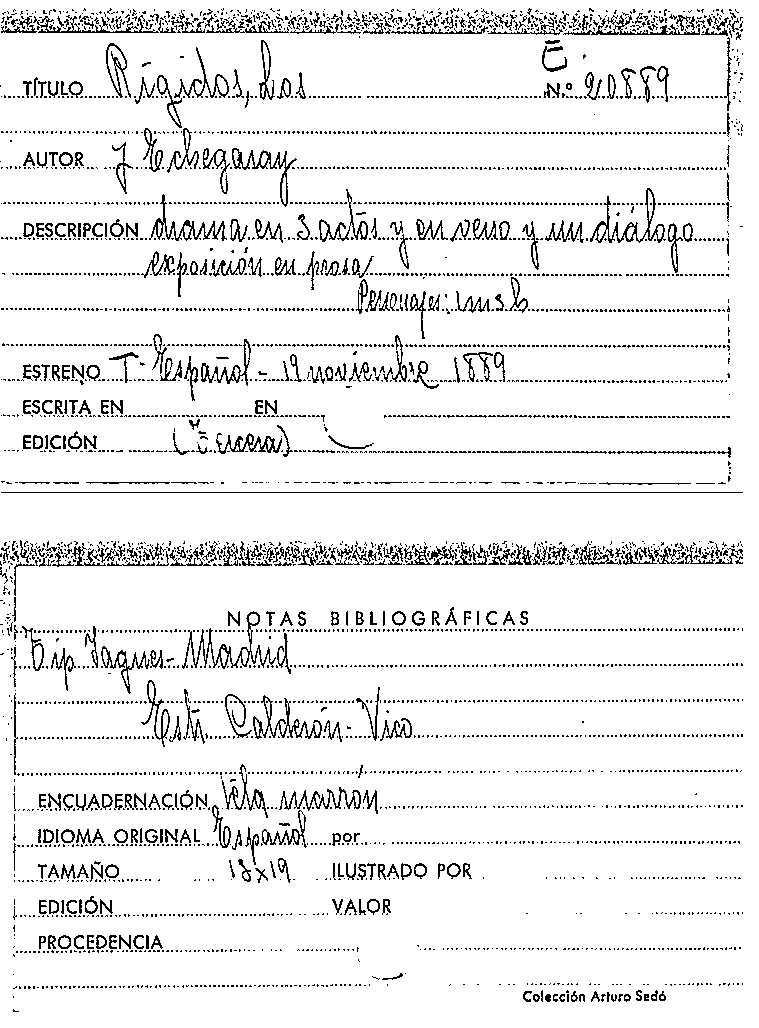 E.
TÍTULO Rígidos, Los Nº 20889
AUTOR J Echegaray
DESCRIPCIÓN drama en 3 actos y en verso y un diálogo
exposición en prosa
Personajes:
ESTRENO T. Español - 19 noviembre 1889
ESCRITA EN EN
EDICIÓN (Tercera)
NOTAS BIBLIOGRÁFICAS
Tip Yagues - Madrid
Estr. Calderón - Vico
ENCUADERNACIÓN tela marrón
IDIOMA ORIGINAL Español por
TAMAÑO 13x19 ILUSTRADO POR
EDICIÓN VALOR
PROCEDENCIA
Colección Arturo Sedó